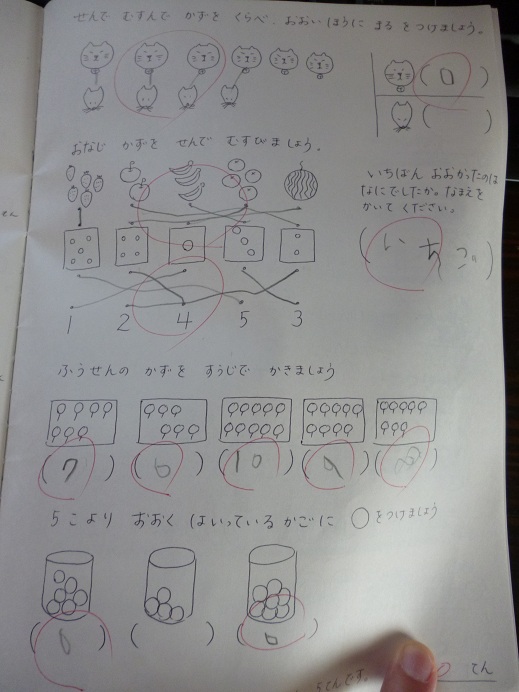 せんで むすんで かずを くらべ、おおい ほうに まる をつけましょう。
( 0 )
( )
おなじ かずを せんで むすびましょう。
いちばん おおかったのは
なにでしたか。なまえを
かいて ください。
(いちご)
1 2 4 5 3
ふうせんの かずを すうじで かきましょう
(7) (6) (10) (9) (8)
5こより おおく はいっている かごに ○をつけましょう
( 0 ) ( ) ( 0 )
てん